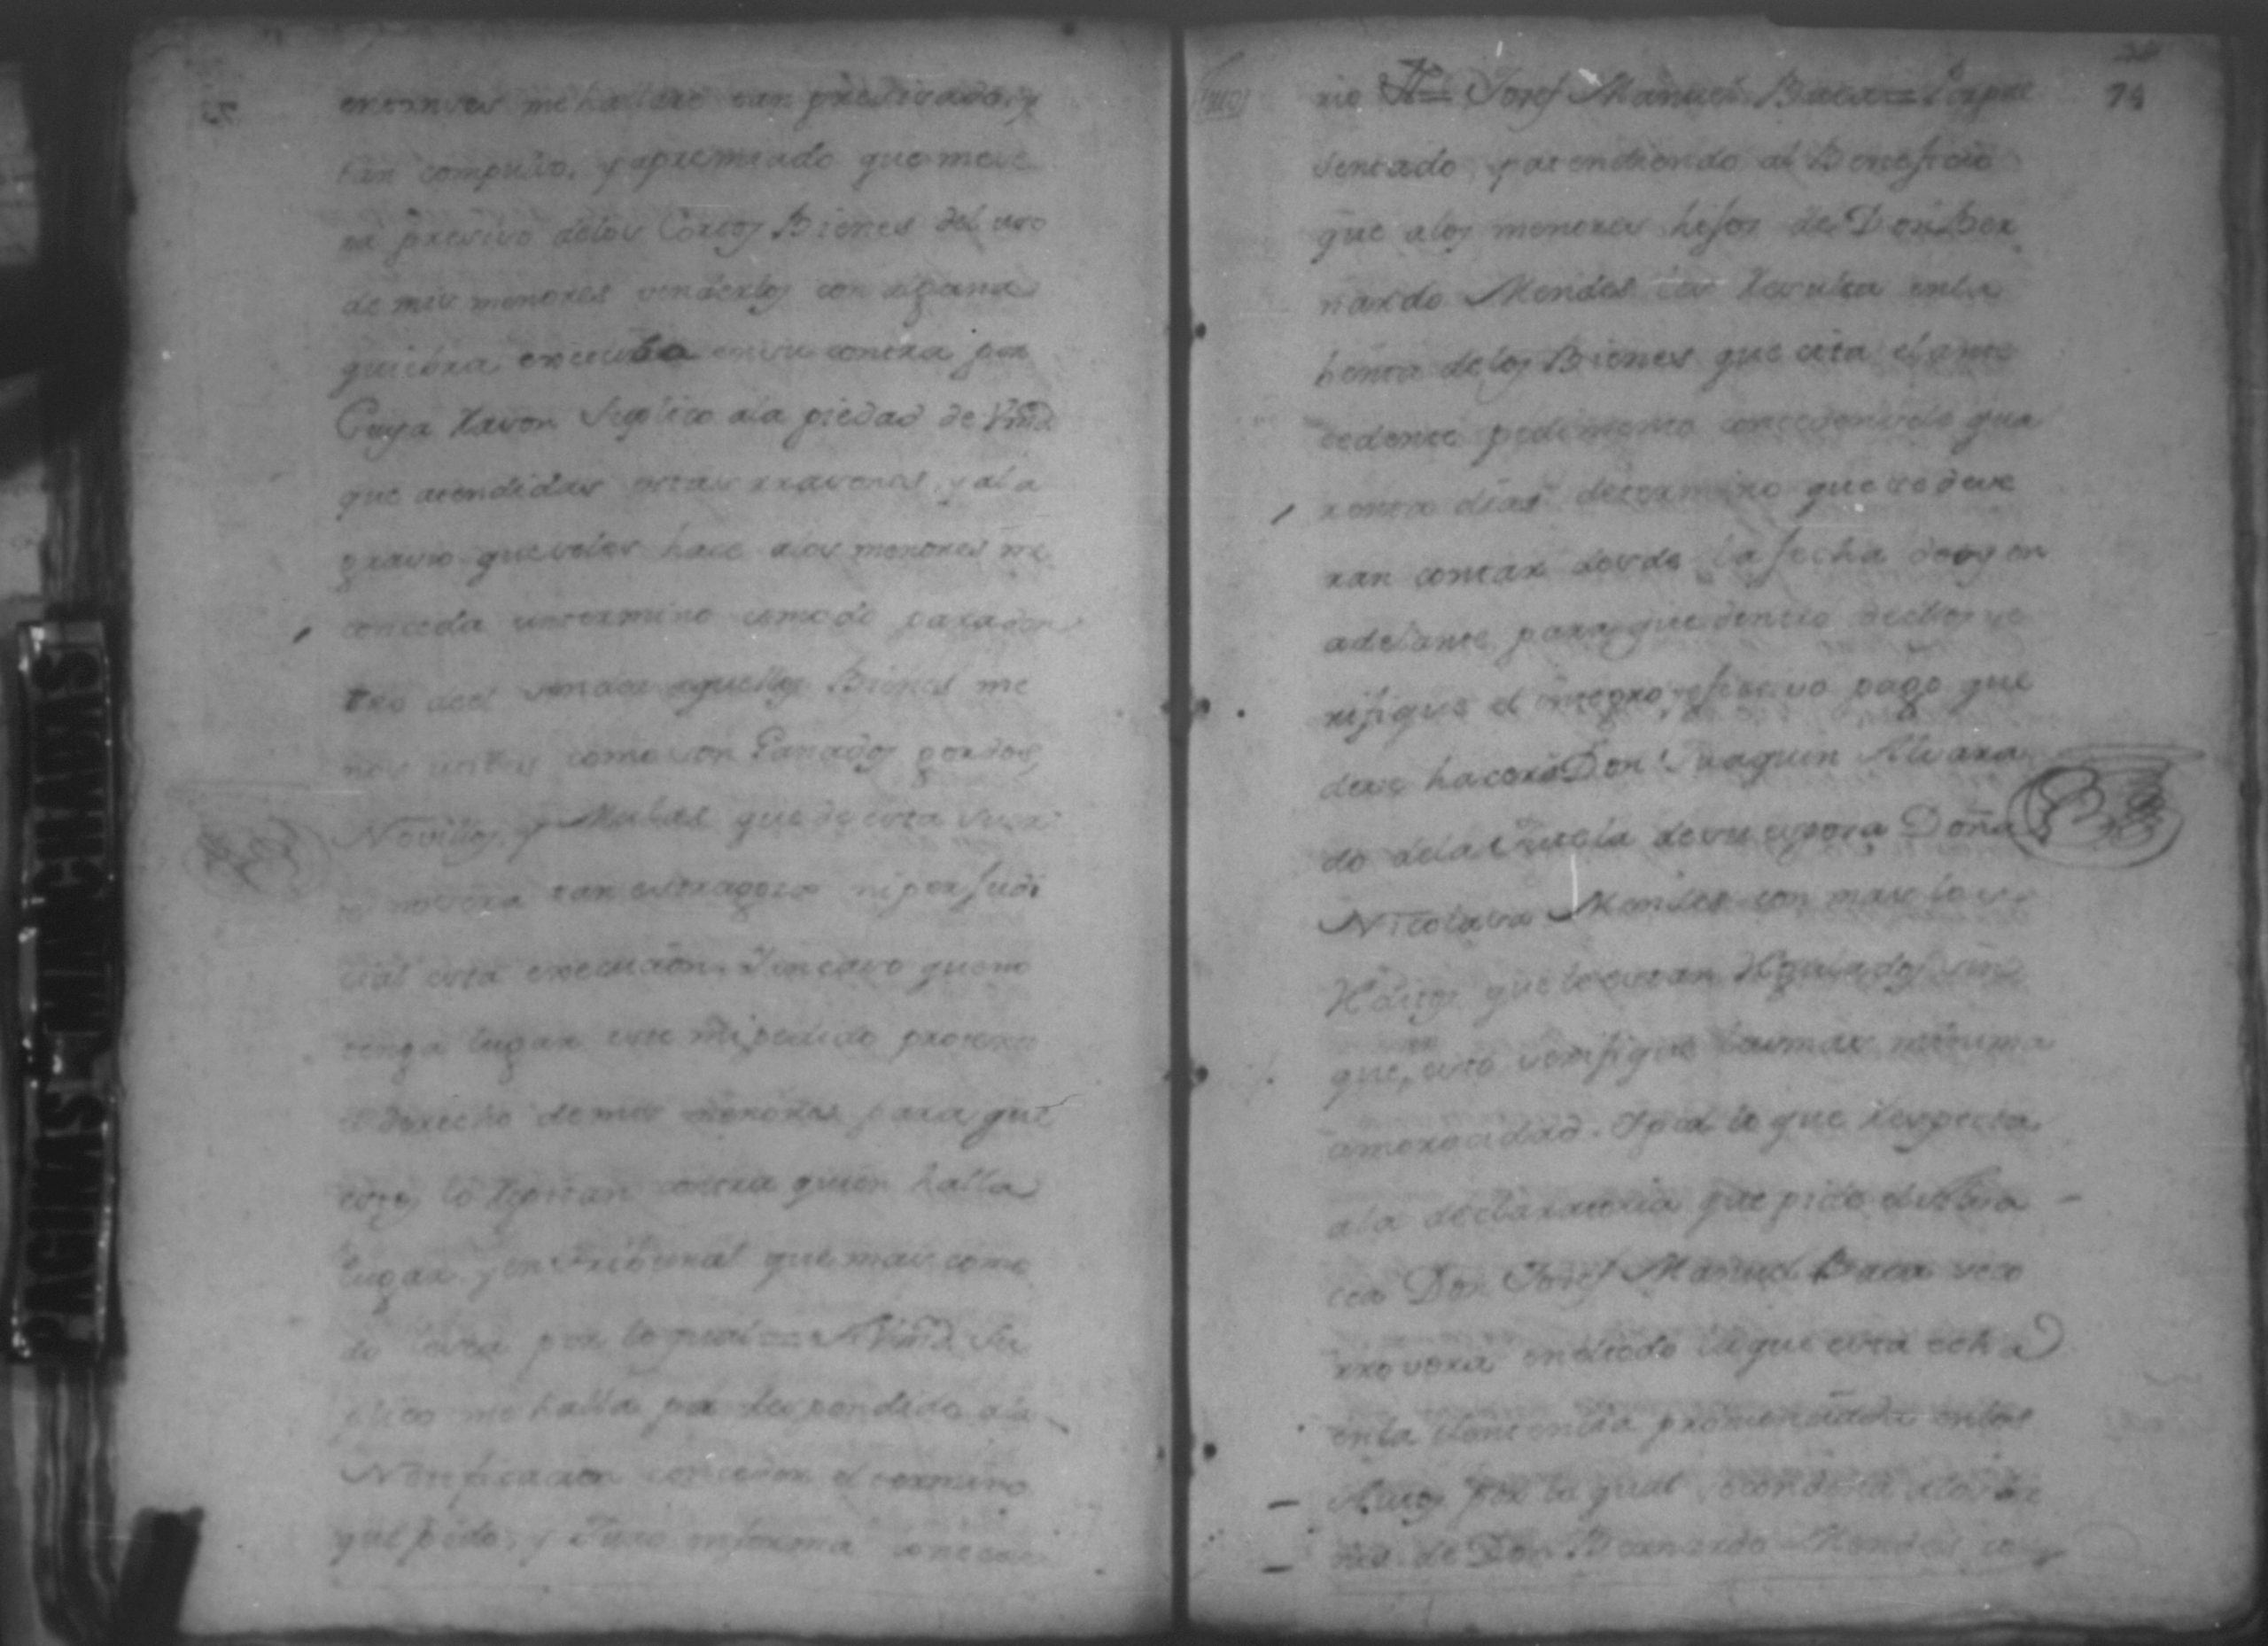 entonses me hallare tan presisado, y
tan compulso, y apremiado que mese
ra presiso delos Cortos Bienes del uso
de mis menores venderlos con alguna
quiebra, en su contra por
Cuya Rason Suplico ala piedad de Vmd
que atendidas estas rrasones, y al a
gravio que seles hace alos menores me
conceda untermino comodo paraden
tro deel vender aquellos Bienes me
nos utiles como son Ganados gordos,
Novillos, y Mulas que de esta suer
te nosera tan estragosa ni perjudi
cial esta execucion. Y en caso queno
tenga lugar este mi pedido protexto
el derecho demis menores para que
estos lo Repitan contra quien halla
lugar, y en Tribunal que mas como
do sea por lo qual = A Vmd Su
plico me halla por Respondido ala
Notificacion conceder el termino
que pido, y Juro en forma
74
Auto
rio Ita = Josef Manuel Baca = Por pre
sentado, y atendiendo al Beneficio
que alos menores hijos de Don Ber
nardo Mendes les Resulta enla
benta delos Bienes que cita el ante
cedente pedimento concedensele qua
renta dias determino que se deve
ran contar desde la fecha deoy en
adelante para que dentro deellos ve
rifique el integro, efectivo pago que
deve hacer a Don Juaquin Alvara
do dela de su esposa Doña
Nicolasa Mendes con mas los
Reditos que le estan Regulados sin
que, esto verifique la mas minima
morocidad. Y por lo que Respecta
ala declaratoria que pide el
cea Don Josef Manuel Baca
enla Sentencia pronunciada enlos
Autos por la qual se condena alos bie
nes de Don Bernardo Mendes
PAGINAS MANCHADAS